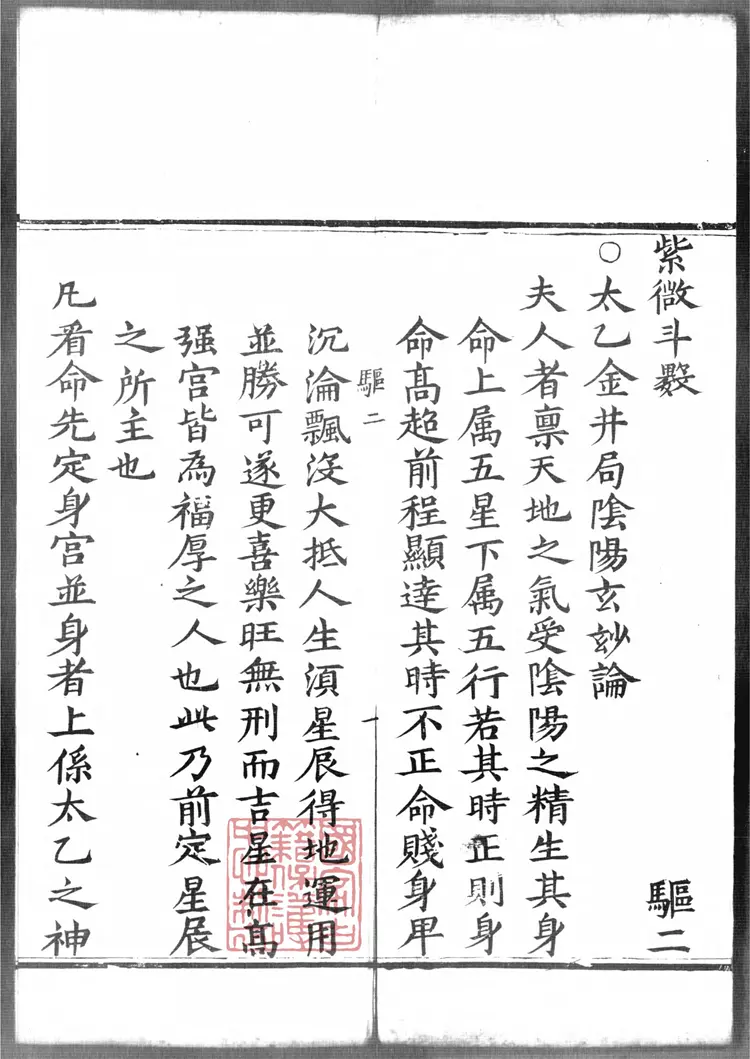 紫微斗數 驅二
○太乙金井局陰陽玄玅論
夫人者禀天地之氣受陰陽之精生其身
命上属五星下属五行若其時正則身
命髙超前程顯達其時不正命賤身甲
驅二
沉淪飄沒大抵人生湏星辰得地運用
並勝可遂更喜樂旺無刑而吉星在髙
强宫皆為福厚之人也此乃前定星辰
之所主也
凡看命先定身宫並身者上係太乙之神